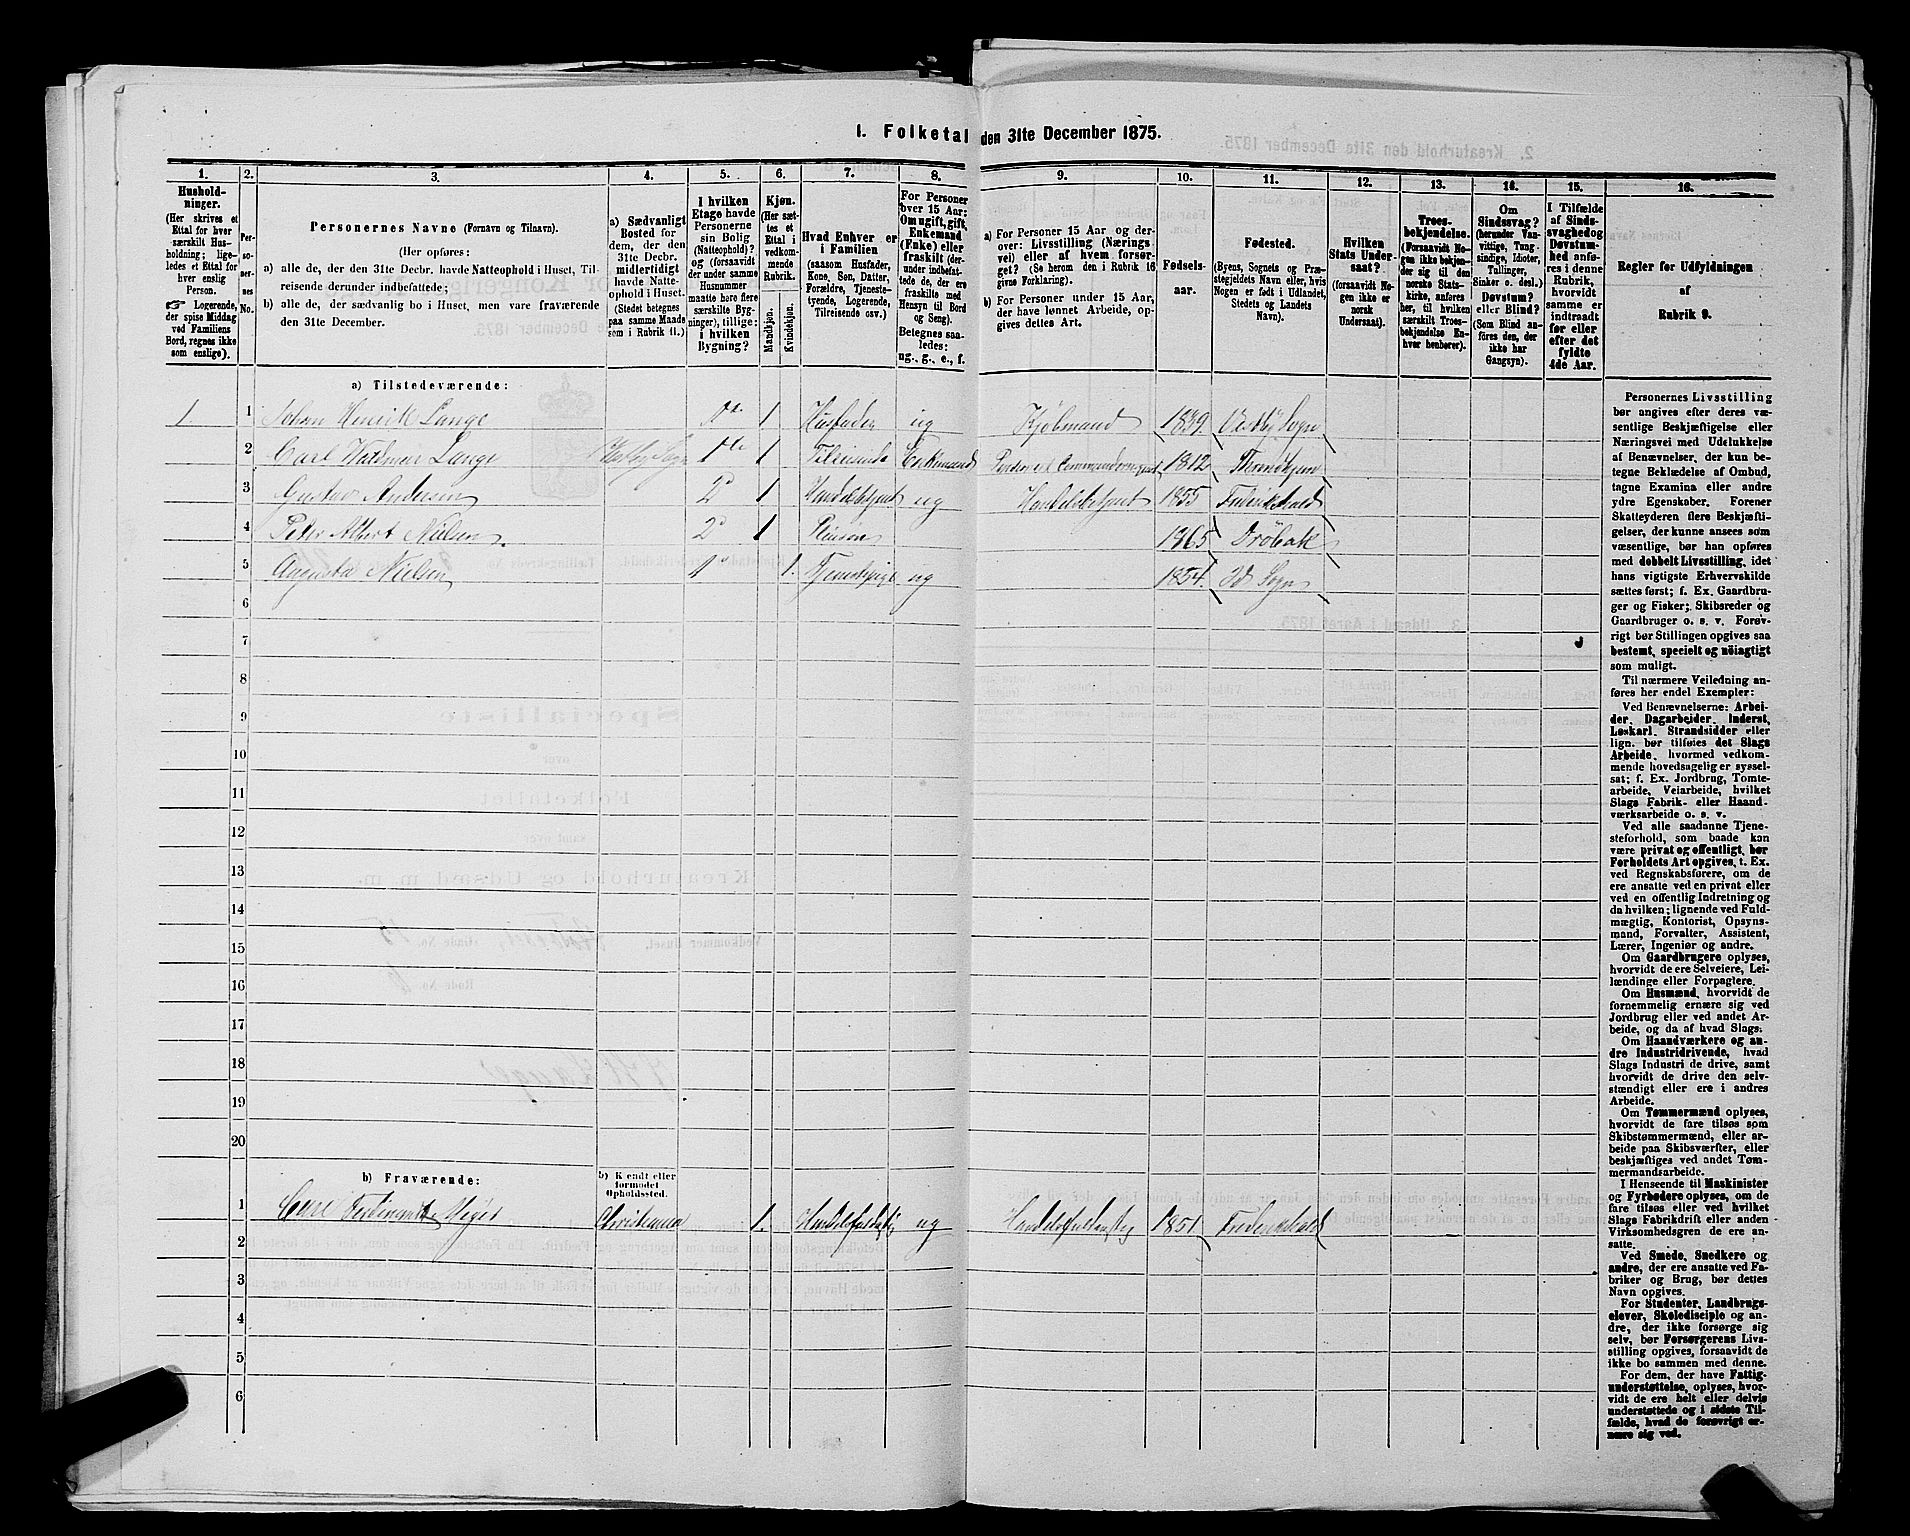 1. Folketal den 31te December 1875.
1. 2. 3. 4. 5. 6. 7. 8. 9. 10. 11. 12. 13. 14. 15. 16.
Hushold-
ninger.
(Her skrives et
Ettal for hver
særskilt Hus-
holdning; lige-
ledes et Ettal for
hver enslig
Person.
☞ Logerende,
der spise Middag
ved Familiens
Bord, regnes ikke
som enslige).
Personernes No.
Personernes Navne (Fornavn og Tilnavn).
(Her opføres:
a) alle de, der den 31te Decbr. havde Natteophold i Huset, Til-
reisende derunder indbefattede;
b) alle de, der sædvanlig bo i Huset, men vare fraværende
den 31te December.
a) Sædvanligt
Bosted for
dem, der den
31te Decbr.
midlertidigt
havde Natte-
ophold i Huset.
(Stedet betegnes
paa samme Maade
som i Rubrik 11.)
I hvilken
Etage havde
Personerne
sin Bolig
(Natteophold?
og (forsaavidt
der under samme
Husnummer
maatte høre flere
særskilte Byg-
ninger), tillige:
i hvilken
Bygning?
Kjøn.
(Her sæt-
tes et
Ettal i
vedkom-
mende
Rubrik.
Mandkjøn.
Kvindekjøn.
Hvad Enhver er
i Familien
(saasom Husfader,
Kone, Søn, Datter,
Forældre, Tjeneste-
tyende, Logerende,
Tilreisende osv.)
For Personer
over 15 Aar:
Om ugift, gift,
Enkemand
(Enke) eller
fraskilt (der-
under indbefat-
tede de, der ere
fraskilte med
Hensyn til Bord
og Seng).
Betegnes saa-
ledes:
ug., g., e., f.
a) For Personer 15 Aar og der-
over: Livsstilling (Nærings-
vei) eller af hvem forsør-
get? (Se herom den i Rubrik 16
givne Forklaring).
b) For Personer under 15 Aar,
der have lønnet Arbeide, op-
gives dettes Art.
Fødsels-
aar.
Fødested.
(Byens, Sognets og Præ-
stegjeldets Navn, eller, hvis
Nogen er født i Udlandet,
Stedets og Landets
Navn).
Hvilken
Stats Under-
saat?
(forsaavidt No-
gen ikke er
norsk
Undersaat).
Troes-
bekjendelse.
(Forsaavidt No-
gen ikke beken-
der sig til den
norske Stats-
kirke, anføres
her, til hvilken
særskilt Troes-
bekjendelse En-
hver henhører).
Om
Sindssvag?
(herunder Van-
vittige, Tung-
sindige, Idioter,
Tullinger,
Sinker o. desl.)
Døvstum?
eller Blind?
(Som Blind an-
føres den, der
ikke har
Gangsyn).
I Tilfælde
af Sinds-
svaghed og
Døvstum-
hed anfø-
res i denne
Rubrik,
hvorvidt
samme er
indtraadt
før eller
efter det
fyldte
4de Aar.
Regler for Udfyldningen
af
Rubrik 9.
a) Tilstedeværende:
1 1 Johan Henrik Lange 1 Husfader ug Kjøbmand 1839 Vestby Sogn
2 Carl Lange 1 Tilreisende Enkemand 1812 Throndhjem
3 Gustav Andersen 2 1 Handelsbetjent ug Handelsbetjent 1855 Fredrikshald
4 Peter Albert Nielsen 2 1 1865 Drøbak
5 Augusta Nielsen 1 Tjenestepige ug 1854 Id Sogn
6
7
8
9
10
11
12
13
14
15
16
17
18
19
20
b) Fraværende:
b) Kjendt eller
formodet
Opholdssted.
1 Carl Ferdinand Christiania 1 ug 1851 Frederikshald
2
3
4
5
6
Personernes Livsstilling
bør angives efter deres væ-
sentlige Beskjæftigelse eller
Næringsvei med Udelukkelse
af Benævnelser, der kun be-
tegne Beklædelse af Ombud,
tagne Examina eller andre
ydre Egenskaber. Forener
Skatteyderen flere Beskjæfti-
gelser, der kunne ansees som
væsentlige, bør han opføres
med dobbelt Livsstilling, idet
hans vigtigste Erhvervskilde
sættes først; f. Ex. Gaardbru-
ger og Fisker; Skibsreder og
Gaardbruger o. s. v. Forøv-
rigt bør Stillingen opgives saa
bestemt, specielt og nøiagtigt
som muligt.
Til nærmere Veiledning an-
føres her endel Exempler:
Ved Benævnelserne: Arbei-
der, Dagarbeider, Inderst,
Løskarl, Strandsidder eller
lign. bør tilføies det Slags
Arbeide, hvormed vedkom-
mende hovedsagelig er syssel-
sat; f. Ex. Jordbrug, Tomte-
arbeide, Veiarbeide, hvilket
Slags Fabrik- eller Haand-
værksarbeide o. s. v.
Ved alle saadanne Tjene-
steforhold, som baade kan
være privat og offentligt, bør
Forholdets Art opgives, t. Ex.
ved Regnskabsførere, om de
ere ansatte ved en privat eller
ved en offentlig Indretning og
da hvilken; lignende ved Fuld-
mægtig, Kontorist, Opsyns-
mand, Forvalter, Assistent,
Lærer, Ingeniør og andre.
Om Gaardbrugere oplyses,
hvorvidt de ere Selveiere, Lei-
lændinge eller Forpagtere.
Om Husmænd, hvorvidt de
fornemmelig ernære sig ved
Jordbrug eller ved andet Ar-
beide, og da af hvad Slags.
Om Haandværkere og an-
dre Industridrivende, hvad
Slags Industri de drive, samt
hvorvidt de drive den selv-
stændigt eller ere i andres
Arbeide.
Om Tømmermænd oplyses,
hvorvidt de fare tilsøs som
Skibstømmermænd, eller ar-
beide paa Skibsværfter, eller
beskjæftiges ved andet Tøm-
mermandsarbeide.
I Henseende til Maskinister
og Fyrbødere oplyses, om de
fare tilsøs eller ved hvilket
Slags Fabrikdrift eller anden
Virksomhedsgren de ere an-
satte.
Ved Smede, Snedkere og
andre, der ere ansatte ved Fa-
briker og Brug, bør dettes
Navn opgives.
For Studenter, Landbrugs-
elever, Skoledisciple og an-
dre, der ikke forsørge sig
selv, bør Forsørgerens Livs-
stilling opgives, forsaavidt de
ikke bo sammen med denne.
For dem, der have Fattig-
understøttelse, oplyses, hvor-
vidt de ere helt eller delvis
understøttede og i sidste Til-
fælde, hvad de forøvrigt er-
nære sig ved.